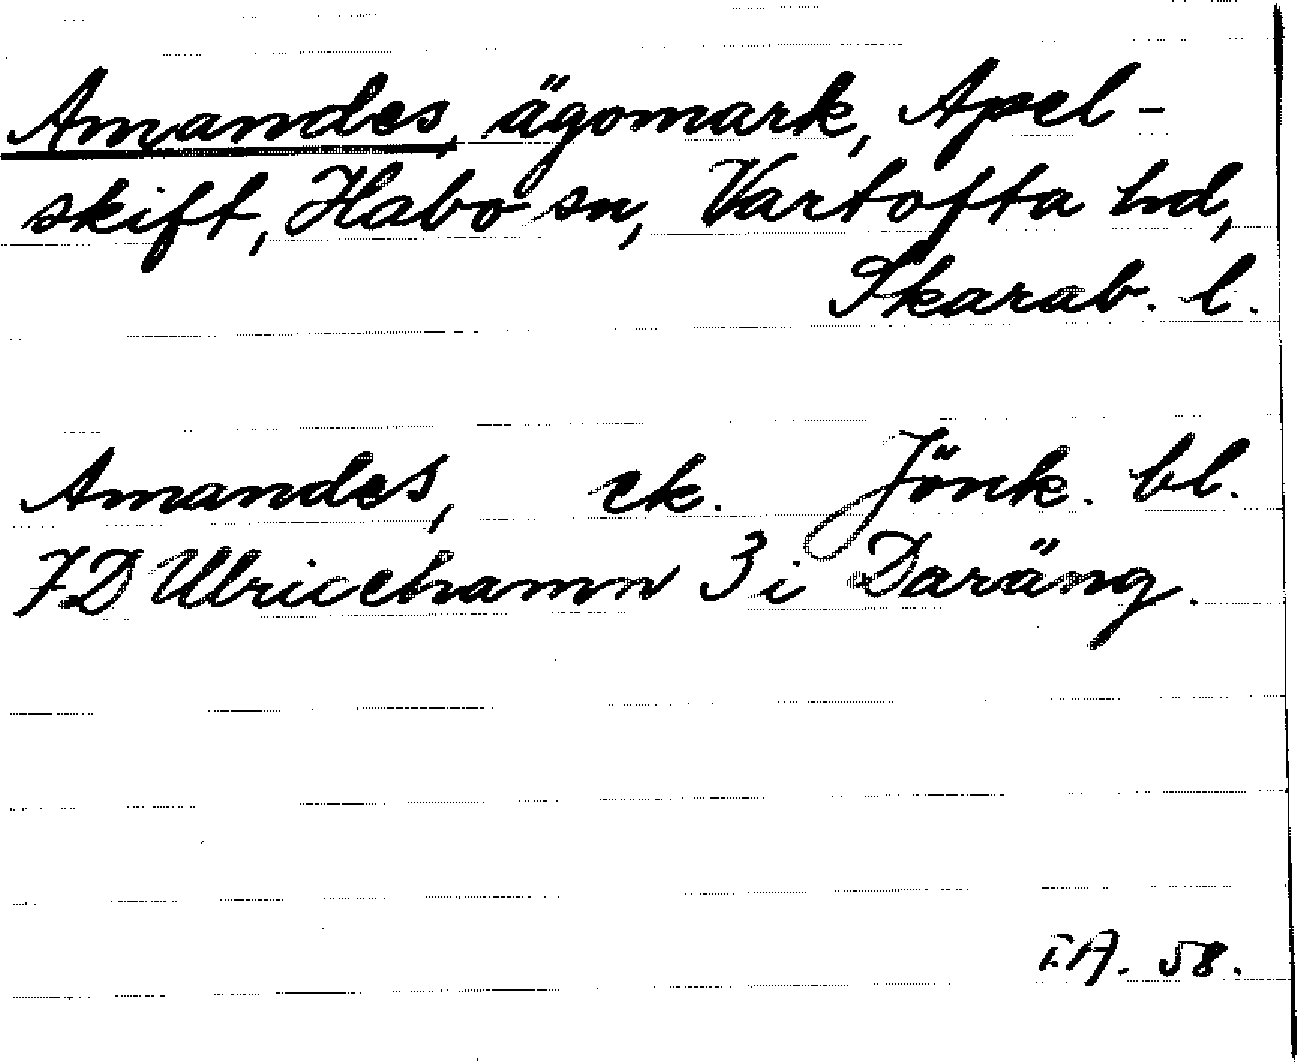 Amandes, ägomark, Apel-
skift, Habo sn, Vartofta hd,
Skarab. l.
Amandes, ek. Jönk. bl.
7D Ulricehamn 3i Daräng.
I.A. 58.